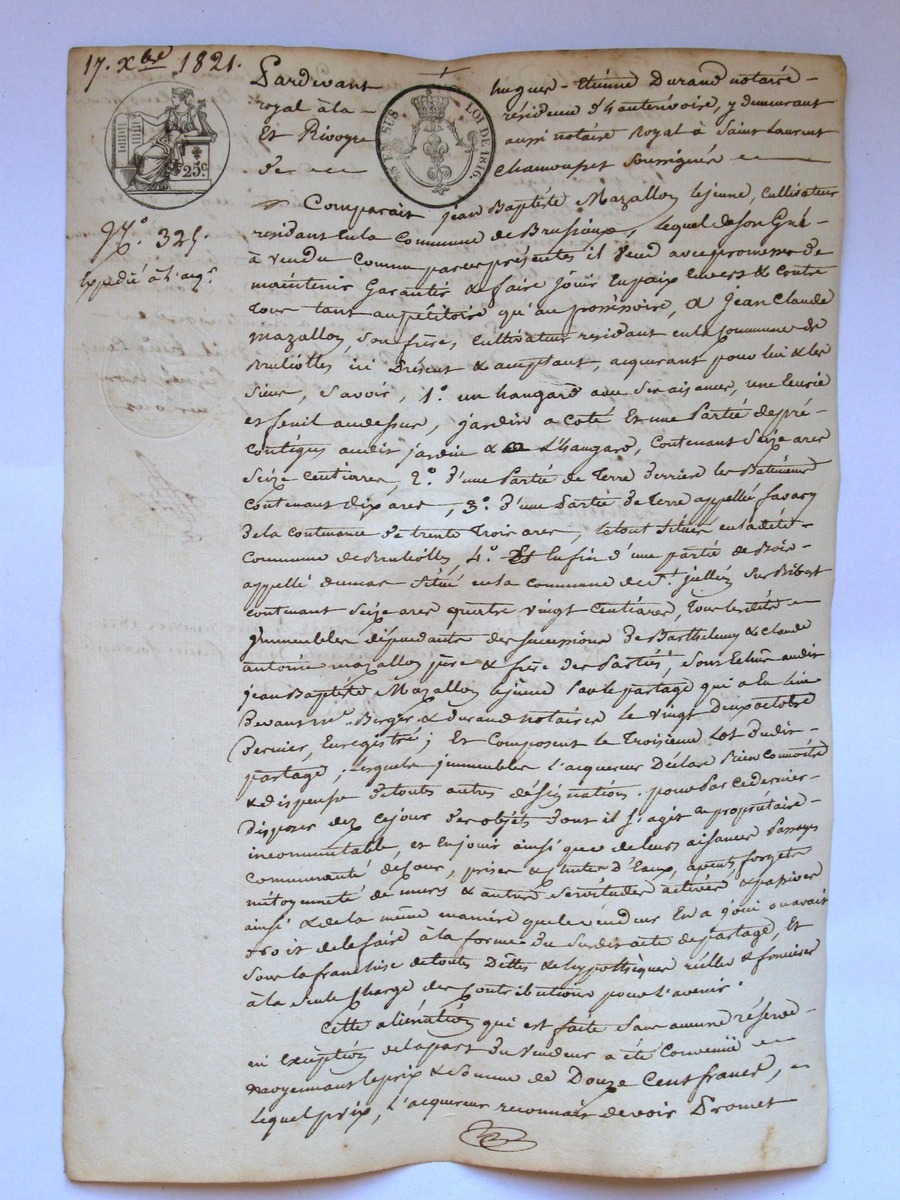 17. Xbre 1821.
Pardevant hugues - Etienne Durand notaire -
royal à la - résidence d'hauterivoire, y demeurant
Et Rivoyre aussi notaire royal à Saint Laurent
de Chamousset Soussignés
EN SUS LOI DE 1816.
25c
No. 325.
Expedié à l'acqr
Comparait jean Baptiste Mazallon lejeune, Cultivateur
résidant en la Commune de Brusioux, Lequel de son Gré
à vendu Comme par ces présentes il Vend avec promesse de
maintenir Garantir & faire jouir En paix Envers & Contre
Tous tant au pétitoire qu'au possessoire, a Jean Claude
mazallon, Son frère, Cultivateur résidant en la Commune de
Bruliolles ici Présent & acceptant, acquérant pour lui & les
Siens, Savoir, 1o. un hangard avec Ses aisances, une Ecurie
et fenil au dessus, jardin a coté Et une Partie de pré -
Contigus audit jardin & a L'hangard, Contenant Seize ares
Seize Centiares, 2o d'une Partie de Terre derrière les Batimens
Contenant dix ares, 3o. d'une Partie de Terre appellé favary
de la Contenance de trente Trois ares, le tout Situés en la dite -
Commune de Brulioles, 4o. Et Enfin d'une partie de Bois
appellé dumas Situé en la commune de St. jullien Sur Bibost
contenant Seize ares quatre vingt Centiares, Tous lesdits
jmmeubles dépendants des Successions de Barthelemy & Claude
antoine mazallon père & frère des Parties, Sont Echus audit
jean Baptiste Mazallon lejeune Par le partage qui a Eu lieu
Devant Me. Berger & durand notaires le vingt Deux octobre
Dernier, Enregistré; Et Composent le Troisieme Lot dudit
partage; lesquels jmmeubles l'acquereur Déclare Bien Connaitre
& dispense de toutes autres désignations. pour Par ce dernier -
disposer dez ce jour des objets dont il s'agit en propriétaire -
incommutable, et En jouir ainsi que de leurs aisances Passages
Communauté de Cour, prises & chutes d'Eaux, apens, forgets
mitoyenneté de murs & autres Servitudes actives & passives
ainsi & de la même manière que le vendeur En a joui ou avait
droit de le faire à la forme du Susdit acte de partage, Et
Sous la franchise de toutes Dettes & hypothèques réelles & foncières
à la Seule Charge des Contributions pour l'avenir.
Cette aliénation qui est faite Sans aucune réserve
ni Exception de la part du Vendeur a été Convenüe
moyennant le prix & Somme de Douze Cent francs,
Lequel prix, l'acquereur reconnait devoir Promet